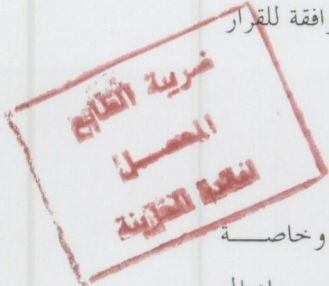 رافقة للقرار
ضريبة الطابع
المحصل
لفائدة الخزينة
وخاصة